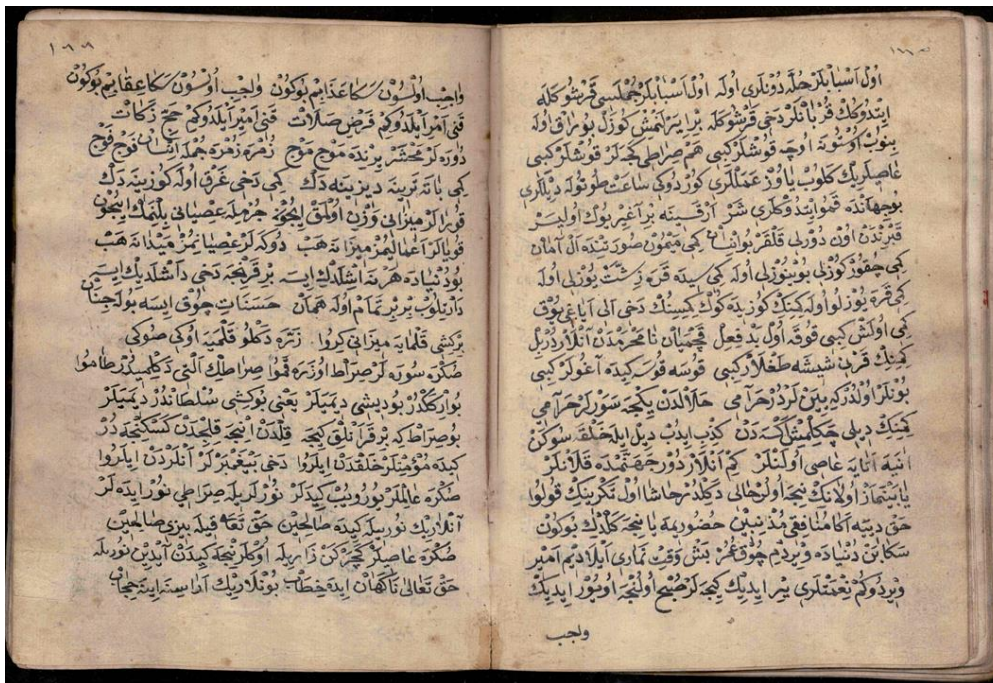 اول اسبابلر حله دونلری اوله اول اسبابلر جمله‌سی قرشو كله
ایتدوكك قربانلر دخی قرشو كله بر ایرلنمش كوزل بوراق اوله
بنوب اوستونه اوچه قوشلر كبی هم صراطی كچه‌لر قوشلر كبی
عاصیلریك كلوب یاوز عمللری كوردوكی ساعت طوتوله دیللری
بو جهانده قمو ایتدوكلری شر ارقسنه بر آغیر یوك اولیسر
قبرندن اون دورلی قلقر بو انسان كمی میمون صورتنده ال امان
كمی جفوز كوزلی بوینوزلی اوله كمی سیده قره زشت یوزلی اوله
كمی قره یوزلو اوله كمنك كوزی ده كوك كمسنك دخی الی ایاغی یوق
كمی اولش كبی قوقه اول بد فعل قچمیان نامحرمدن آنلردر بل
كمنك قرنی شیشه طغلار كبی قوسه قوسه كیده آغولر كبی
بونلر اولدر كه یینلردر حرامی حلالدن یكجه سورلر حرامی
كمنك دیلی چكلمش اكسه‌دن كذب ایدوب دیل ایله خلقه سوكن
انیه اتایه عاصی اولنلر كم آنلاردور جهنمده قلانلر
یا بینماز اولانك نیجه اولر حالی دكلدر حاشا اول تكرینك قولوا
حق دییه اكا منافقی مذنبین حضوریمه یا نیجه كلدیك بوكون
سكا بن دنیاده ویردم چوق عمر بش وقت نمازی ایلا دیم امیر
ویردوكم نعمتلری ییر ایدیك كیجه‌لر صبح اولنجه اویور ایدیك
واجب
١٦٩
واجب اولسون سكا عذابم بوكون واجب اولسون سكا عقابم بوكون
قنی امر ایلدوكم فرض صلات قنی امر ایلدوكم حج زكات
دوره‌لر محشر یرنده موج موج زمره زمره جمله انسان فوج فوج
كمی باته ترینه دیزینه دك كمی دخی غرق اوله كوزینه دك
قورالر میزانی وزن اولمق ایچون جرمله عصیانی بلنمك ایچون
قویالر اعمالیمز میزانه هب دوكه‌لر عصیانمز میدانه هب
بو دنیاده هر نه اشلدك ایسه بر قرنجه دخی داشلدیك ایسه
دارتلوب بربر تمام اوله همان حسنات چوق ایسه بوله جنان
بر كشی قلمایه میزانی كروا زره دكلو قلمیه اوكی صوكی
صكره سوره‌لر صراط اوزره قموا صراطك التی دكلمیدر طاموا
بو اركلدر بو دیشی دیمیلر یعنی بو كشی سلطاندر دیمیلر
بو صراط كه بر قرا تلق كیجه قلدن انجه قلیجدن كسكنجه در
كیده مؤمنلر خلقدن ایلروا دخی پیغمبرلر آنلردن ایلروا
صكره عالملر یورویب كیده‌لر نورلریله صراطی نور ایده‌لر
آنلاریك نوریله كیده صالحین حق تعا قیله بیزی صالحین
صكره عاصیلر كچركن زاریله اوكلرنجه كیدن آیدین نوریله
حق تعالی ناكهان ایده خطاب بونلاریك اراسنه اینه حجاب